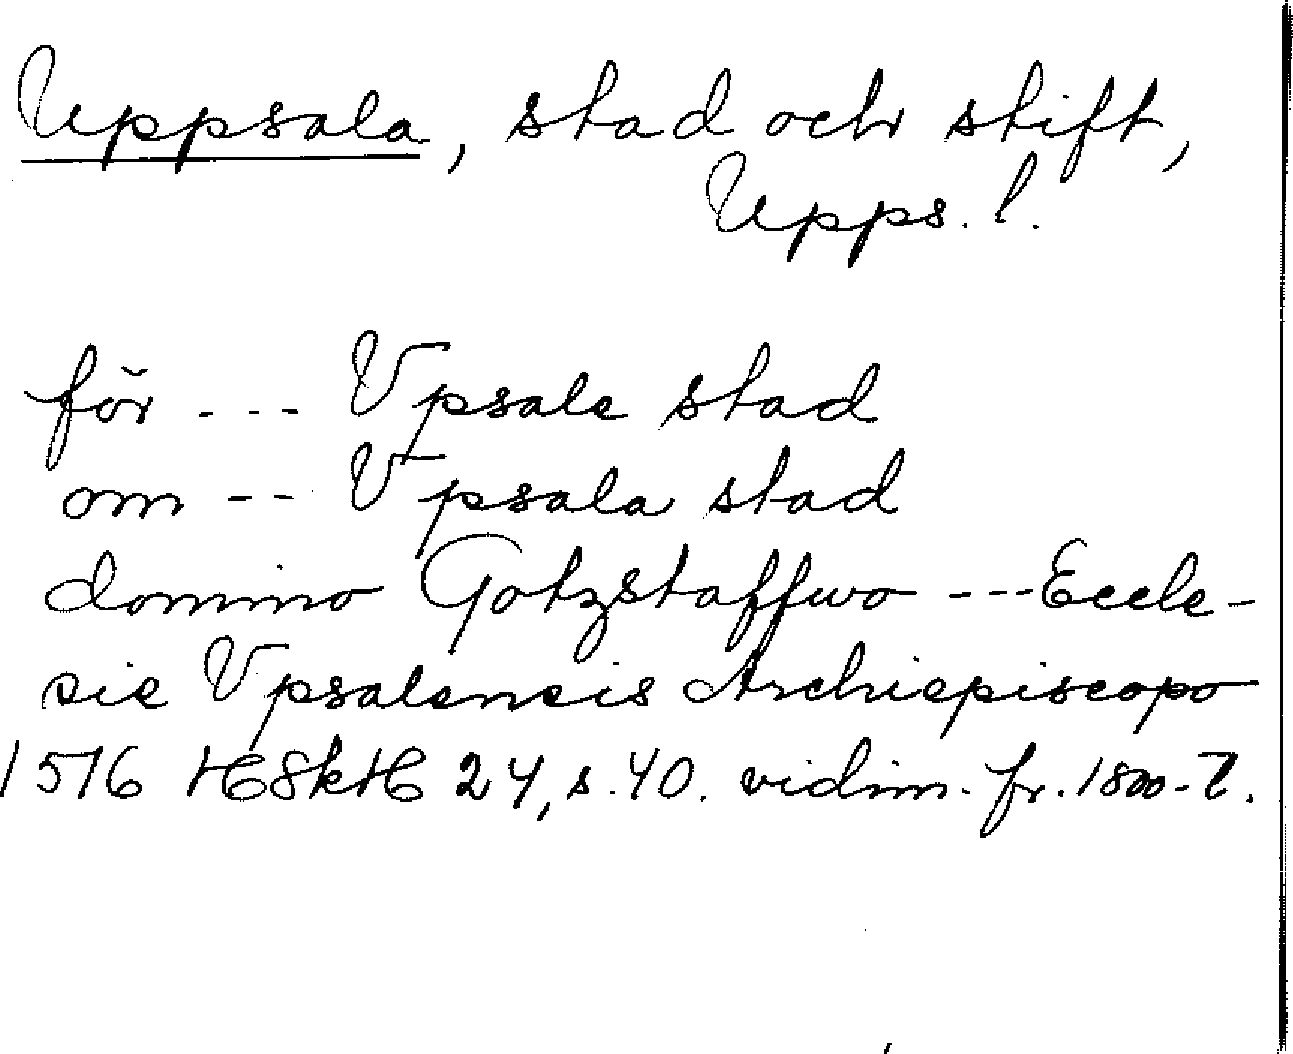 Uppsala, stad och stift,
Upps. l.
för --- Vpsale stad
om -- Vpsala stad
domino Gotzstaffwo --- Eccle-
sie Vpsalensis Archiepiscopo
1576 HSkH 24, s. 40. vidim. fr. 1800-t.